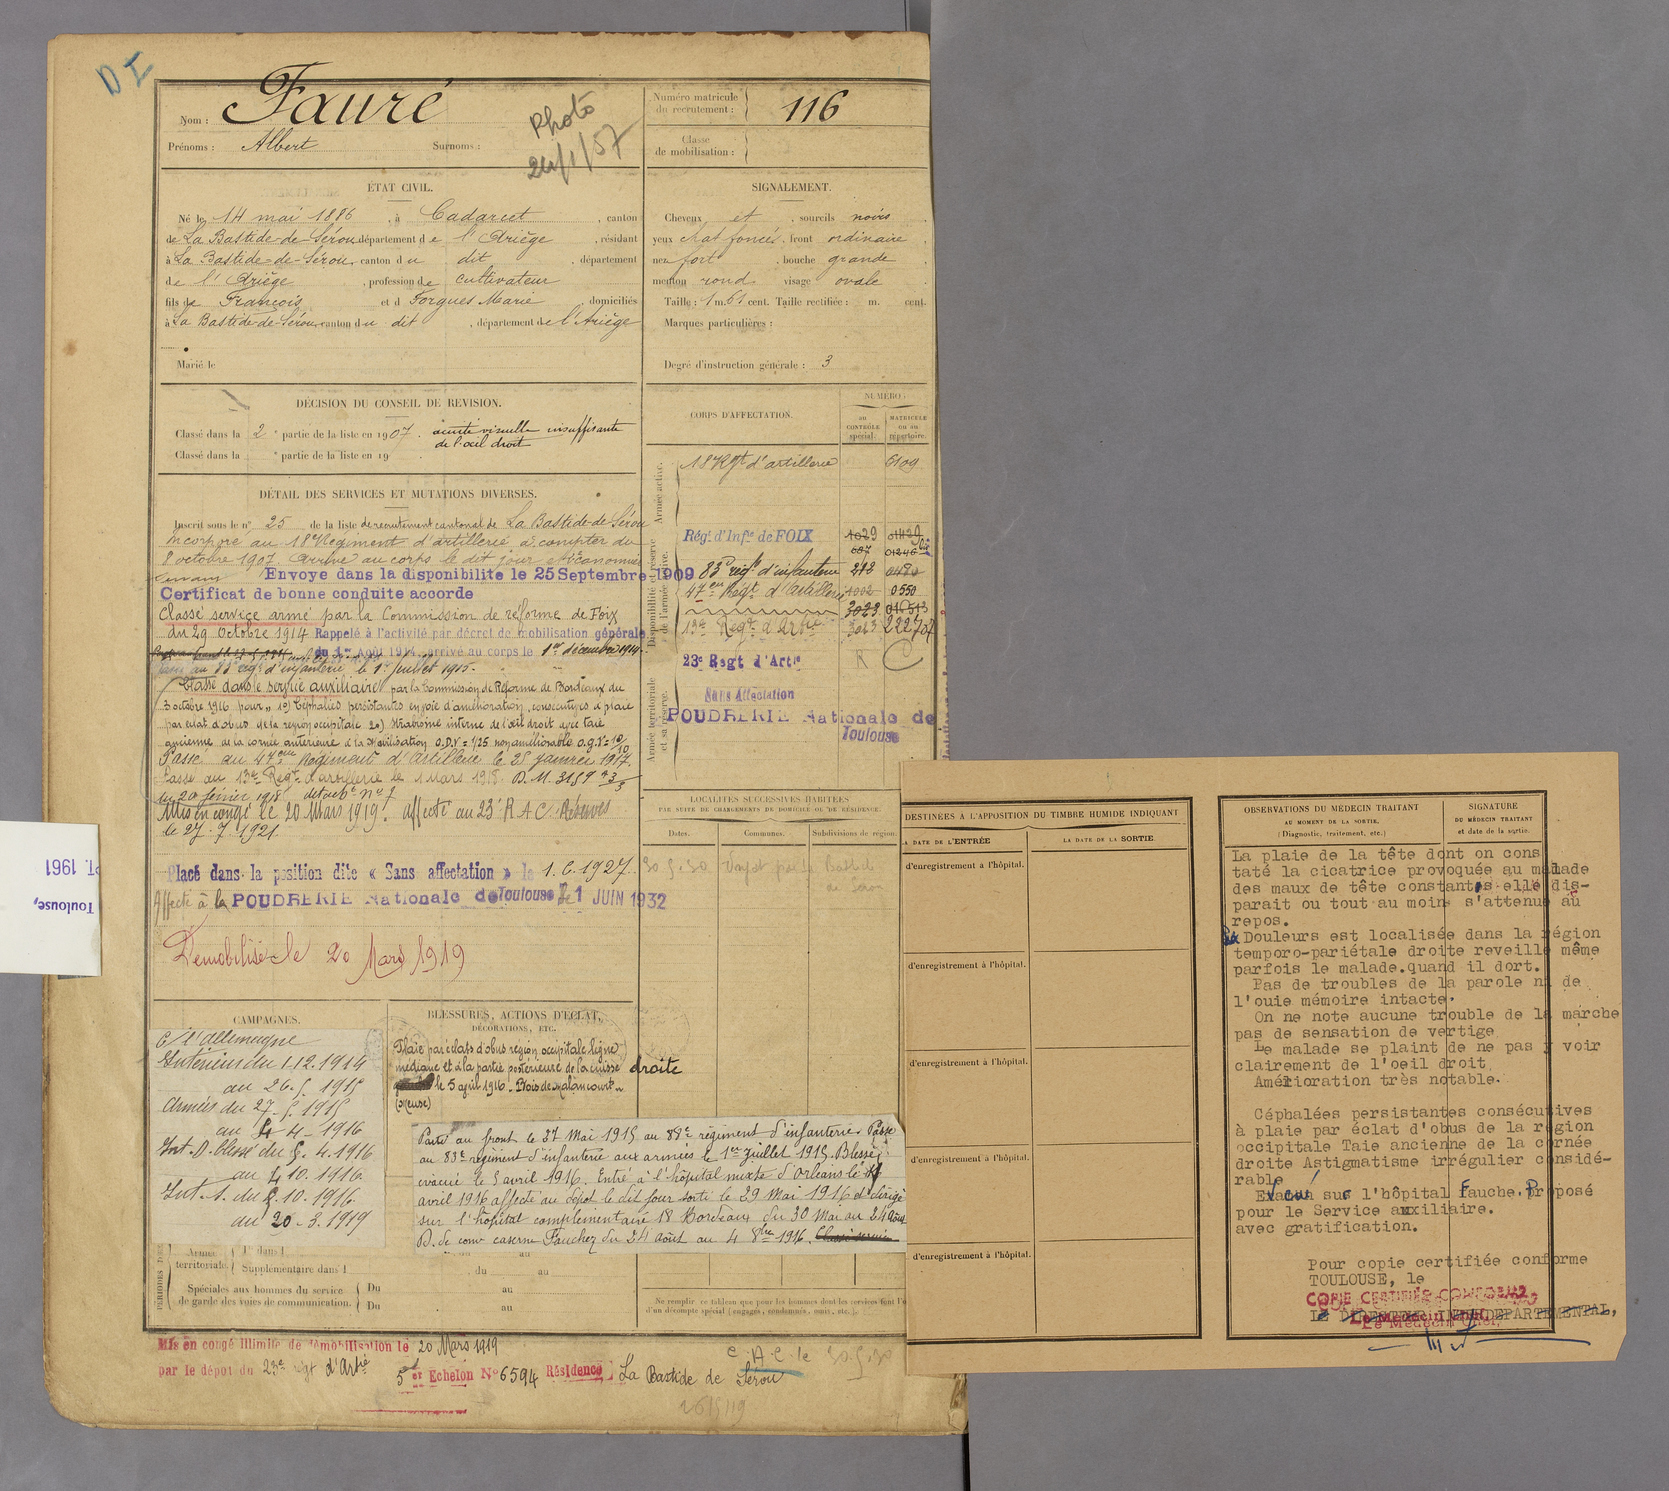 D I
Nom : Fauré
Prénoms : Albert Surnoms :
Photo
24/1/57
Numéro matricule
du recrutement : 116
Classe
de mobilisation :
ÉTAT CIVIL.
Né le 14 mai 1886, à Cadarcet, canton
de La Bastide-de-Sérou département de l'Ariège, résidant
à La Bastide-de-Sérou, canton du dit, département
de l'Ariège, profession de cultivateur
fils de François et d Forgues Marie, domiciliés
à La Bastide-de-Sérou, canton du dit, département de l'Ariège
Marié le
SIGNALEMENT.
Cheveux et, sourcils noirs
yeux chat foncés, front ordinaire,
nez fort, bouche grande
menton rond visage ovale.
Taille : 1 m. 61 cent. Taille rectifiée : m. cent.
Marques particulières :
Degré d'instruction générale : 3
DÉCISION DU CONSEIL DE REVISION.
Classé dans la 2e partie de la liste en 1907. acuité visuelle insuffisante
de l'œil droit
Classé dans la e partie de la liste en 19
CORPS D'AFFECTATION.
NUMÉRO
au
CONTRÔLE
spécial.
MATRICULE
ou au
répertoire.
Armée active.
18e Rgt d'artillerie 6109
Disponibilité et réserve
de l'armée active.
Régt d'Infie de FOIX 1029
687
83e régt d'infanterie 212
47eme Régt d'Artillerie 1002 0550
3023
13e Régt d'Artie 3023
Armée territoriale
et sa réserve.
23e Regt d'Artie R C
Sans Affectation
POUDRERIE Nationale de
Toulouse
DÉTAIL DES SERVICES ET MUTATIONS DIVERSES.
Inscrit sous le n° 25 de la liste de recrutement cantonal de La Bastide-de-Sérou
Incorporé au 18e Régiment d'artillerie à compter du
8 octobre 1907. Arrivé au corps le dit jour
Envoyé dans la disponibilité le 25 Septembre 1909
Certificat de bonne conduite accordé
Classé service armé par la Commission de réforme de Foix
du 29 Octobre 1914 Rappelé à l'activité par décret de mobilisation générale
du 1er Août 1914, arrivé au corps le 1er décembre 1914.
au 83e régt d'infanterie le 1er Juillet 1915.
Classé dans le service auxiliaire par la Commission de Réforme de Bordeaux du
3 octobre 1916 pour « 1o) Céphalées persistantes en voie d'amélioration, consécutives à plaie
par éclat d'obus de la région occipitale 2o) Strabisme interne de l'œil droit avec taie
ancienne de la cornée antérieure à la Mobilisation O.D.V = 1/25 non améliorable O.G.V = 10/10
Passé au 47eme Régiment d'Artillerie le 25 janvier 1917.
Passé au 13e Régt d'artillerie le 1 Mars 1918. D.M. 3159
du 20 février 1918
Mis en congé le 20 Mars 1919. affecté au 23e R A C Réserves
le 27.7.1921.
Placé dans la position dite « Sans affectation » le 1.6.1927.
Affecté à la POUDRERIE Nationale de Toulouse le 1 JUIN 1932
Démobilisé le 20 Mars 1919
LOCALITÉS SUCCESSIVES HABITÉES
PAR SUITE DE CHANGEMENTS DE DOMICILE OU DE RÉSIDENCE.
Dates. Communes. Subdivisions de région.
30.5.30
CAMPAGNES.
C/ l'Allemagne
Intérieur du 1.12.1914
au 26.5.1915
Armées du 27.5.1915
au 4-4-1916
Int. D. blessé du 5.4.1916
au 4.10.1916.
Int. S. du 5.10.1916.
au 20-3.1919
BLESSURES, ACTIONS D'ÉCLAT,
DÉCORATIONS, ETC.
Plaie par éclats d'obus région occipitale ligne
médiane et à la partie postérieure de la cuisse droite
le 5 avril 1916. Bois de Malancourt
(Meuse)
Parti au front le 27 Mai 1915 au 88e régiment d'infanterie. Passé
au 83e régiment d'infanterie aux armées le 1er juillet 1915. Blessé
évacué le 5 avril 1916. Entré à l'hôpital mixte d'Orléans le
avril 1916 affecté au dépôt le dit jour sorti le 29 Mai 1916 et dirigé
sur l'hôpital complémentaire 18 Bordeaux du 30 Mai au 24 août
D. de conv caserne Faucher du 24 août au 4 8bre 1916.
Armée
territoriale.
Supplémentaire dans l
du au
Spéciales aux hommes du service
de garde des voies de communication.
Du au
Du au
Mis en congé illimité de démobilisation le 20 Mars 1919
par le dépôt du 23e rgt d'Artie 5e Echelon N° 6594 Résidence La Bastide de Sérou
C.A.C. le 30.5.30
PT. 1961
Toulouse,
DESTINÉES À L'APPOSITION DU TIMBRE HUMIDE INDIQUANT
LA DATE DE L'ENTRÉE LA DATE DE LA SORTIE
d'enregistrement à l'hôpital.
d'enregistrement à l'hôpital.
d'enregistrement à l'hôpital.
d'enregistrement à l'hôpital.
d'enregistrement à l'hôpital.
OBSERVATIONS DU MÉDECIN TRAITANT
AU MOMENT DE LA SORTIE.
(Diagnostic, traitement, etc.)
SIGNATURE
DU MÉDECIN TRAITANT
et date de la sortie.
La plaie de la tête dont on cons
taté la cicatrice provoquée au malade
des maux de tête constants elle dis-
parait ou tout au moins s'attenue au
repos.
Douleurs est localisée dans la région
temporo-pariétale droite reveille même
parfois le malade.quand il dort.
Pas de troubles de la parole ni de
l'ouie mémoire intacte.
On ne note aucune trouble de la marche
pas de sensation de vertige
Le malade se plaint de ne pas y voir
clairement de l'oeil droit
Amélioration très notable.
Céphalées persistantes consécutives
à plaie par éclat d'obus de la région
occipitale Taie ancienne de la cornée
droite Astigmatisme irrégulier considé-
rable
Evacué sur l'hôpital Fauche.Proposé
pour le Service auxiliaire.
avec gratification.
Pour copie certifiée conforme
TOULOUSE, le
COPIE CERTIFIÉE CONFORME
LE DIRECTEUR INTERDEPARTEMENTAL,
Le Médecin Chef,